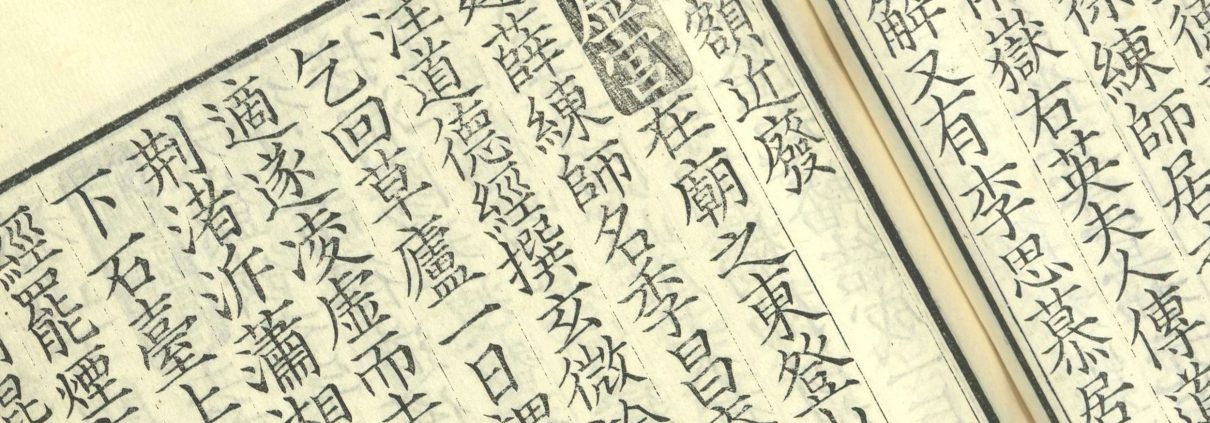 徐練師居
嶽右英夫人傳道
解又有李思慕居
額近發
宮在廟之東登
薛練師名季昌
注道德經撰玄微
乞回草廬一日謂
適遂凌虛而去
荊渚泝瀟湘
下石臺上
經罷煙